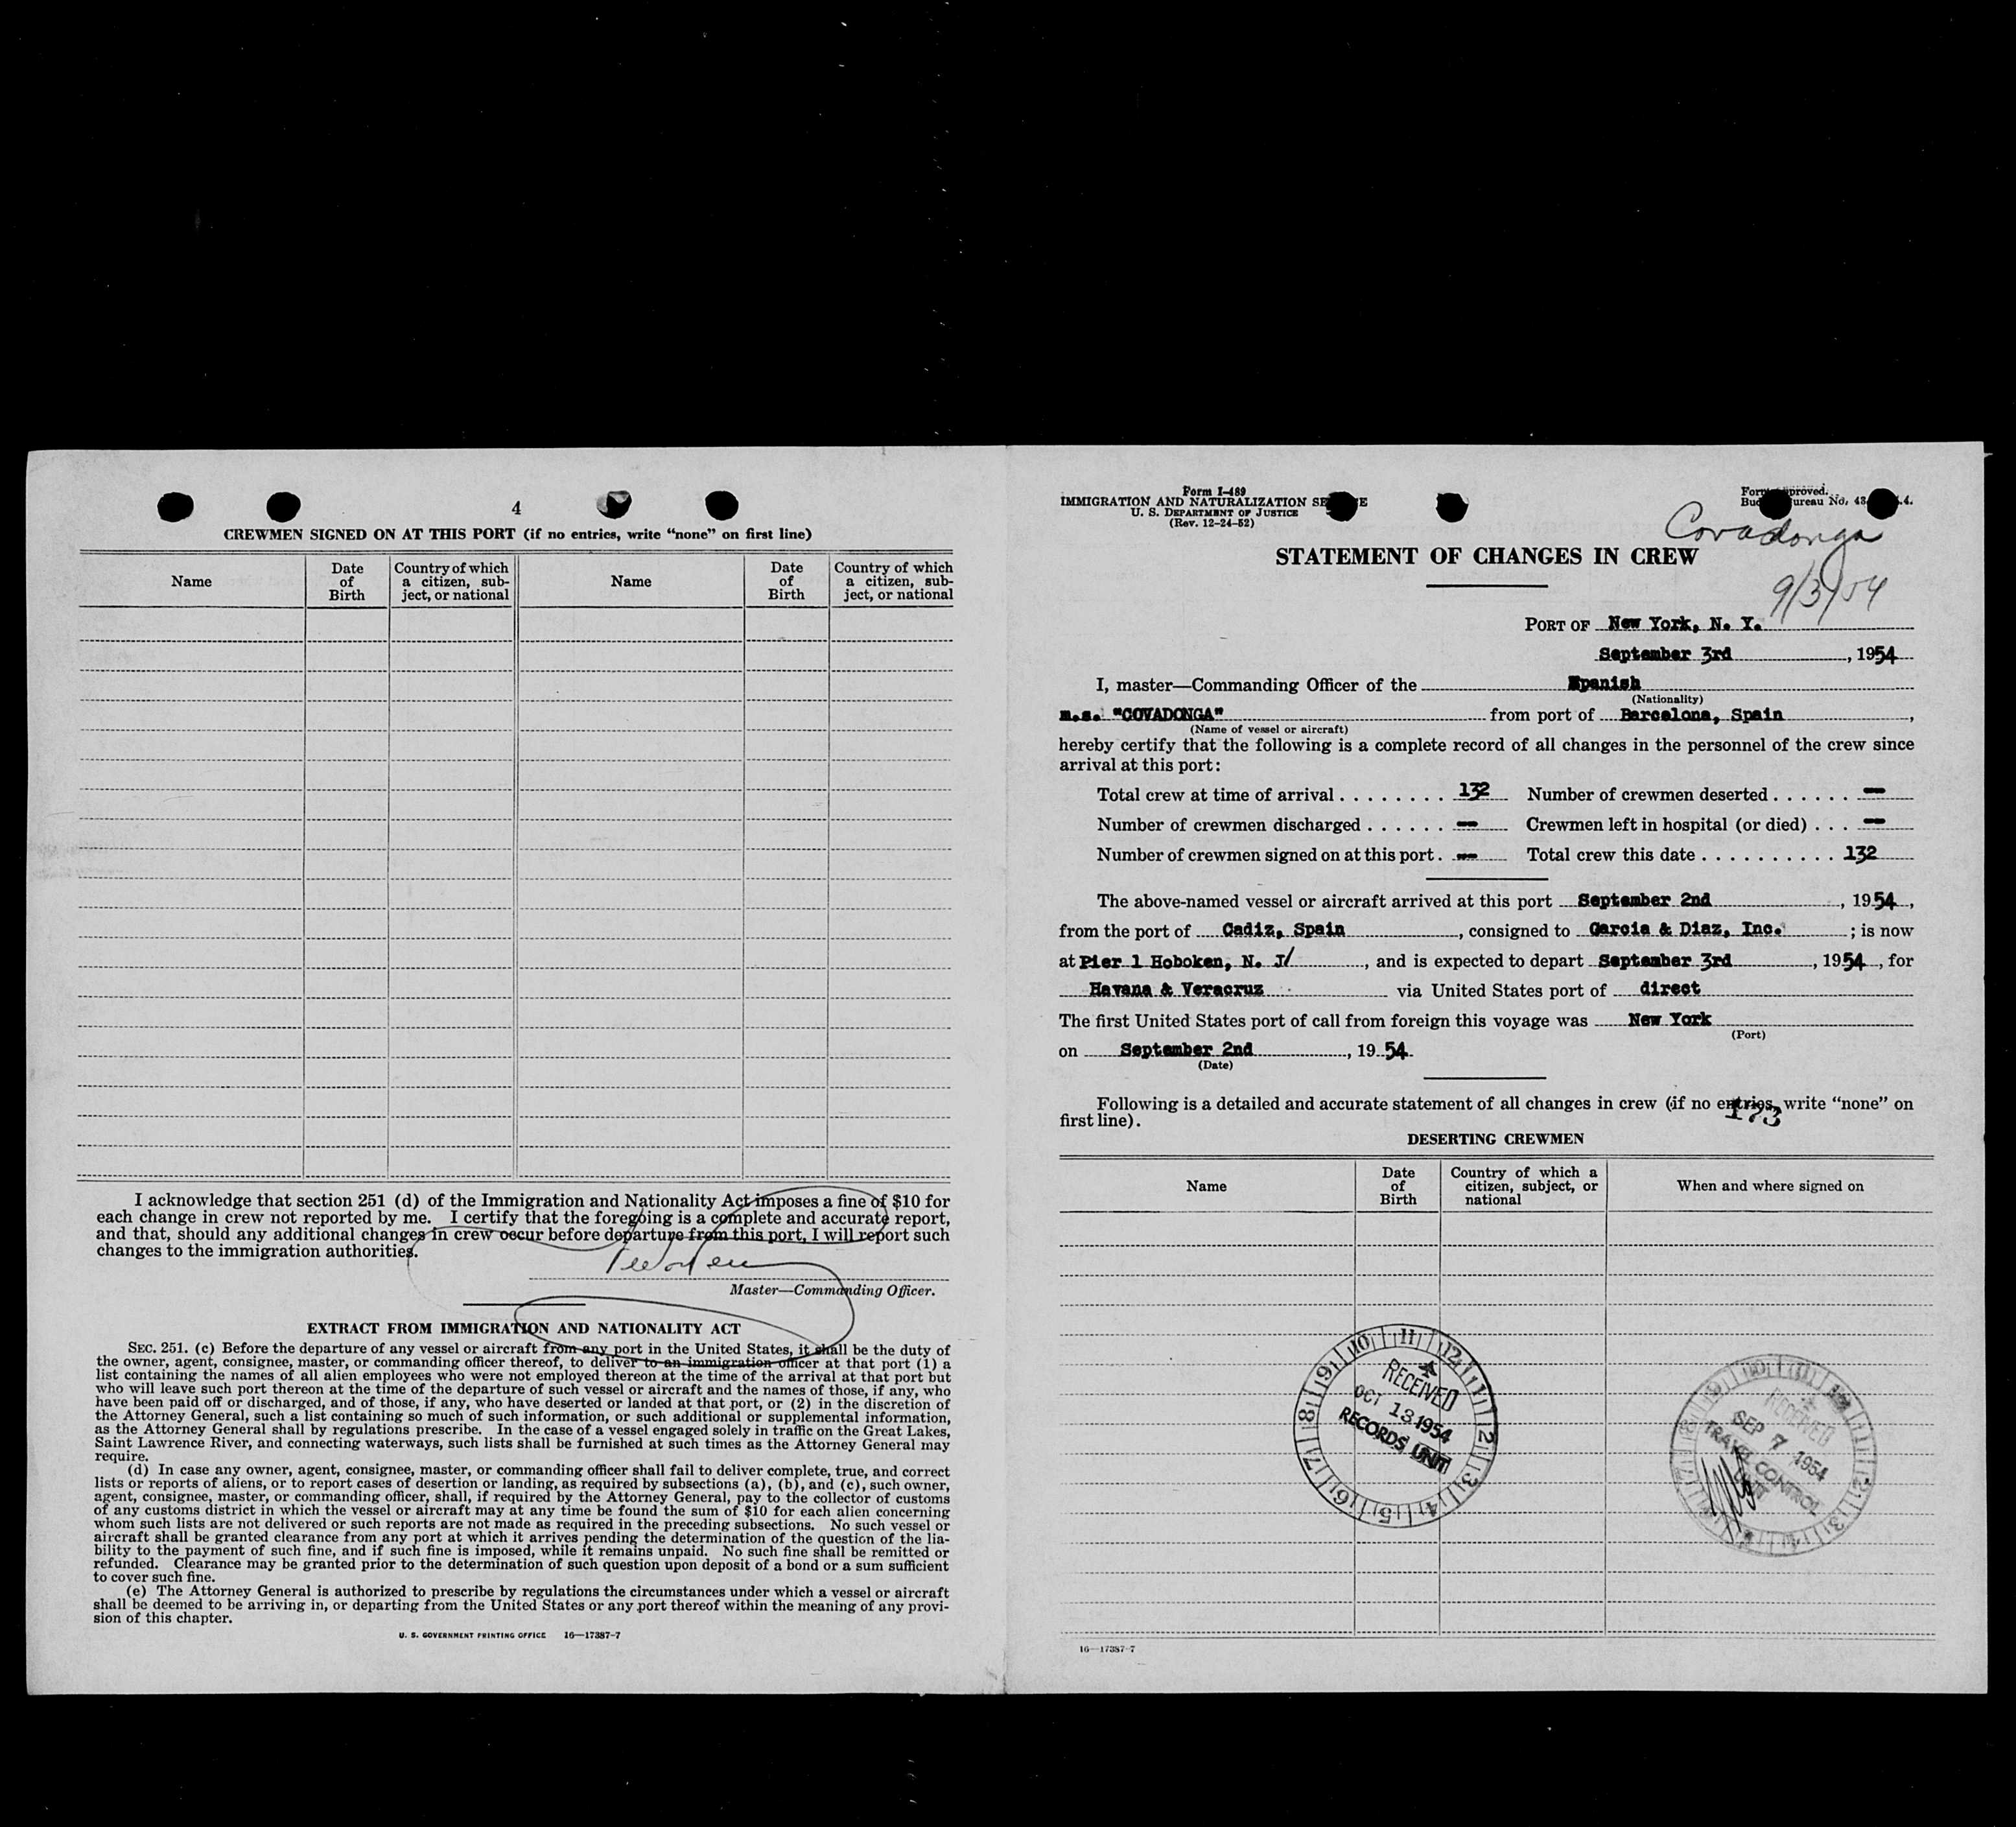 4
CREWMEN SIGNED ON AT THIS PORT (if no entries, write "none" on first line)
Name
Date of Birth
Country of which a citizen, sub-ject, or national
Name
Date of Birth
Country of which a citizen, sub-ject, or national
I acknowledge that section 251 (d) of the Immigration and Nationality Act imposes a fine of $10 for
each change in crew not reported by me. I certify that the foregoing is a complete and accurate report,
and that, should any additional changes in crew occur before departure from this port, I will report such
changes to the immigration authorities.
Master—Commanding Officer.
EXTRACT FROM IMMIGRATION AND NATIONALITY ACT
SEC. 251. (c) Before the departure of any vessel or aircraft from any port in the United States, it shall be the duty of
the owner, agent, consignee, master, or commanding officer thereof, to deliver to an immigration officer at that port (1) a
list containing the names of all alien employees who were not employed thereon at the time of the arrival at that port but
who will leave such port thereon at the time of the departure of such vessel or aircraft and the names of those, if any, who
have been paid off or discharged, and of those, if any, who have deserted or landed at that port, or (2) in the discretion of
the Attorney General, such a list containing so much of such information, or such additional or supplemental information,
as the Attorney General shall by regulations prescribe. In the case of a vessel engaged solely in traffic on the Great Lakes,
Saint Lawrence River, and connecting waterways, such lists shall be furnished at such times as the Attorney General may
require.
(d) In case any owner, agent, consignee, master, or commanding officer shall fail to deliver complete, true, and correct
lists or reports of aliens, or to report cases of desertion or landing, as required by subsections (a), (b), and (c), such owner,
agent, consignee, master, or commanding officer, shall, if required by the Attorney General, pay to the collector of customs
of any customs district in which the vessel or aircraft may at any time be found the sum of $10 for each alien concerning
whom such lists are not delivered or such reports are not made as required in the preceding subsections. No such vessel or
aircraft shall be granted clearance from any port at which it arrives pending the determination of the question of the lia-
bility to the payment of such fine, and if such fine is imposed, while it remains unpaid. No such fine shall be remitted or
refunded. Clearance may be granted prior to the determination of such question upon deposit of a bond or a sum sufficient
to cover such fine.
(e) The Attorney General is authorized to prescribe by regulations the circumstances under which a vessel or aircraft
shall be deemed to be arriving in, or departing from the United States or any port thereof within the meaning of any provi-
sion of this chapter.
U. S. GOVERNMENT PRINTING OFFICE 16—17387-7
Form I-489
IMMIGRATION AND NATURALIZATION SE
U. S. DEPARTMENT OF JUSTICE
(Rev. 12-24-52)
Covadonga
STATEMENT OF CHANGES IN CREW
9/3/54
PORT OF New York, N. Y.
September 3rd, 1954
I, master—Commanding Officer of the Spanish
(Nationality)
m.s. "COVADONGA" from port of Barcelona, Spain,
(Name of vessel or aircraft)
hereby certify that the following is a complete record of all changes in the personnel of the crew since
arrival at this port:
Total crew at time of arrival ........ 132 Number of crewmen deserted ...... —
Number of crewmen discharged ...... — Crewmen left in hospital (or died) ... —
Number of crewmen signed on at this port. — Total crew this date .......... 132
The above-named vessel or aircraft arrived at this port September 2nd, 1954,
from the port of Cadiz, Spain, consigned to Garcia & Diaz, Inc.; is now
at Pier 1 Hoboken, N. J/, and is expected to depart September 3rd, 1954, for
Havana & Veracruz via United States port of direct
The first United States port of call from foreign this voyage was New York
(Port)
on September 2nd, 1954.
(Date)
Following is a detailed and accurate statement of all changes in crew (if no entries, write "none" on
173
first line).
DESERTING CREWMEN
Name
Date of Birth
Country of which a citizen, subject, or national
When and where signed on
RECEIVED
OCT 13 1954
RECORDS UNIT
RECEIVED
SEP 7 1954
TRAVEL CONTROL
UNIT
16—17387-7